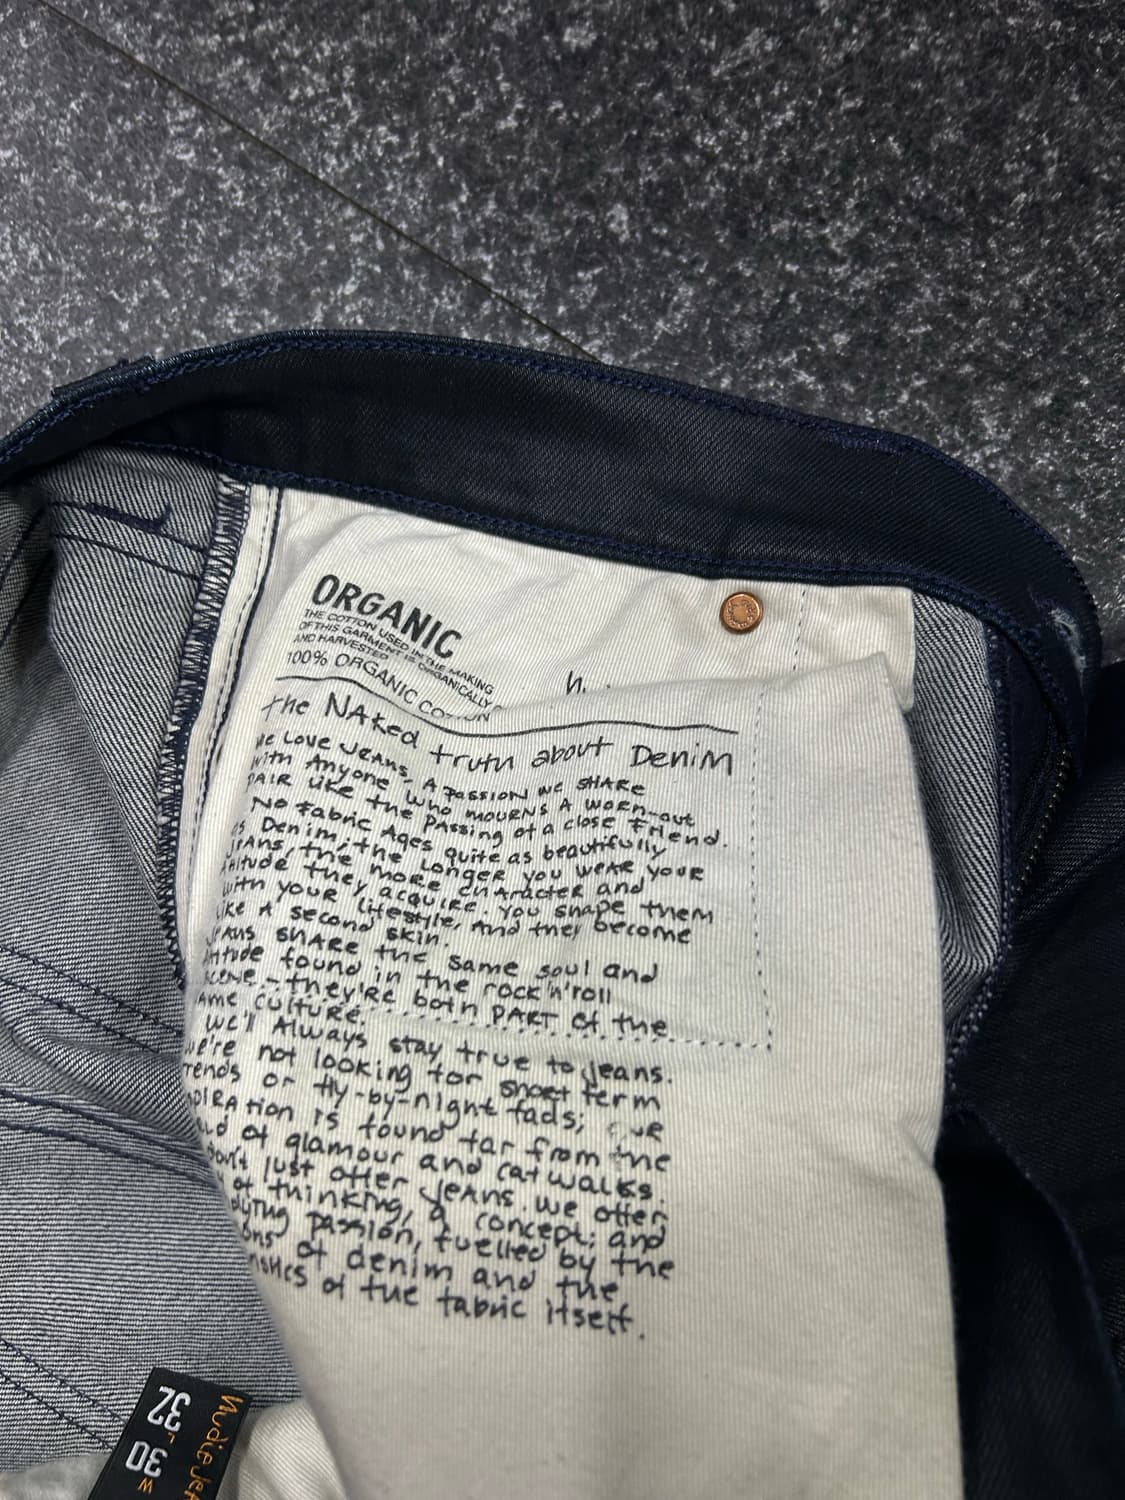 ORGANIC
THE COTTON USED IN THE MAKING
OF THIS GARMENT IS ORGANICALLY
AND HARVESTED
100% ORGANIC COTTON
the NAked truth about Denim
We Love Jeans, A passion we SHARe
with Anyone who mourns A worn-out
pAIR like the passing of a close friend.
No Fabric Ages quite as beautifully
as Denim; the Longer you weAR your
jeans, the more chARActer and
attitude they acquire. You shape them
with your lifestyle, And they become
like A second skin.
Jeans shARe the same soul and
attitude found in the rock'n'roll
scene - they're both PART of the
same culture.
We'll Always stay true to jeans.
We're not looking for short term
trends or fly-by-night fads; our
inspiRAtion is found far from the
of glamour and catwalks.
don't just offer jeans. we offer
of thinking, a concept; and
passion, fuelled by the
of denim and the
of the fabric itself.
Nudie Je
32 L
30 W